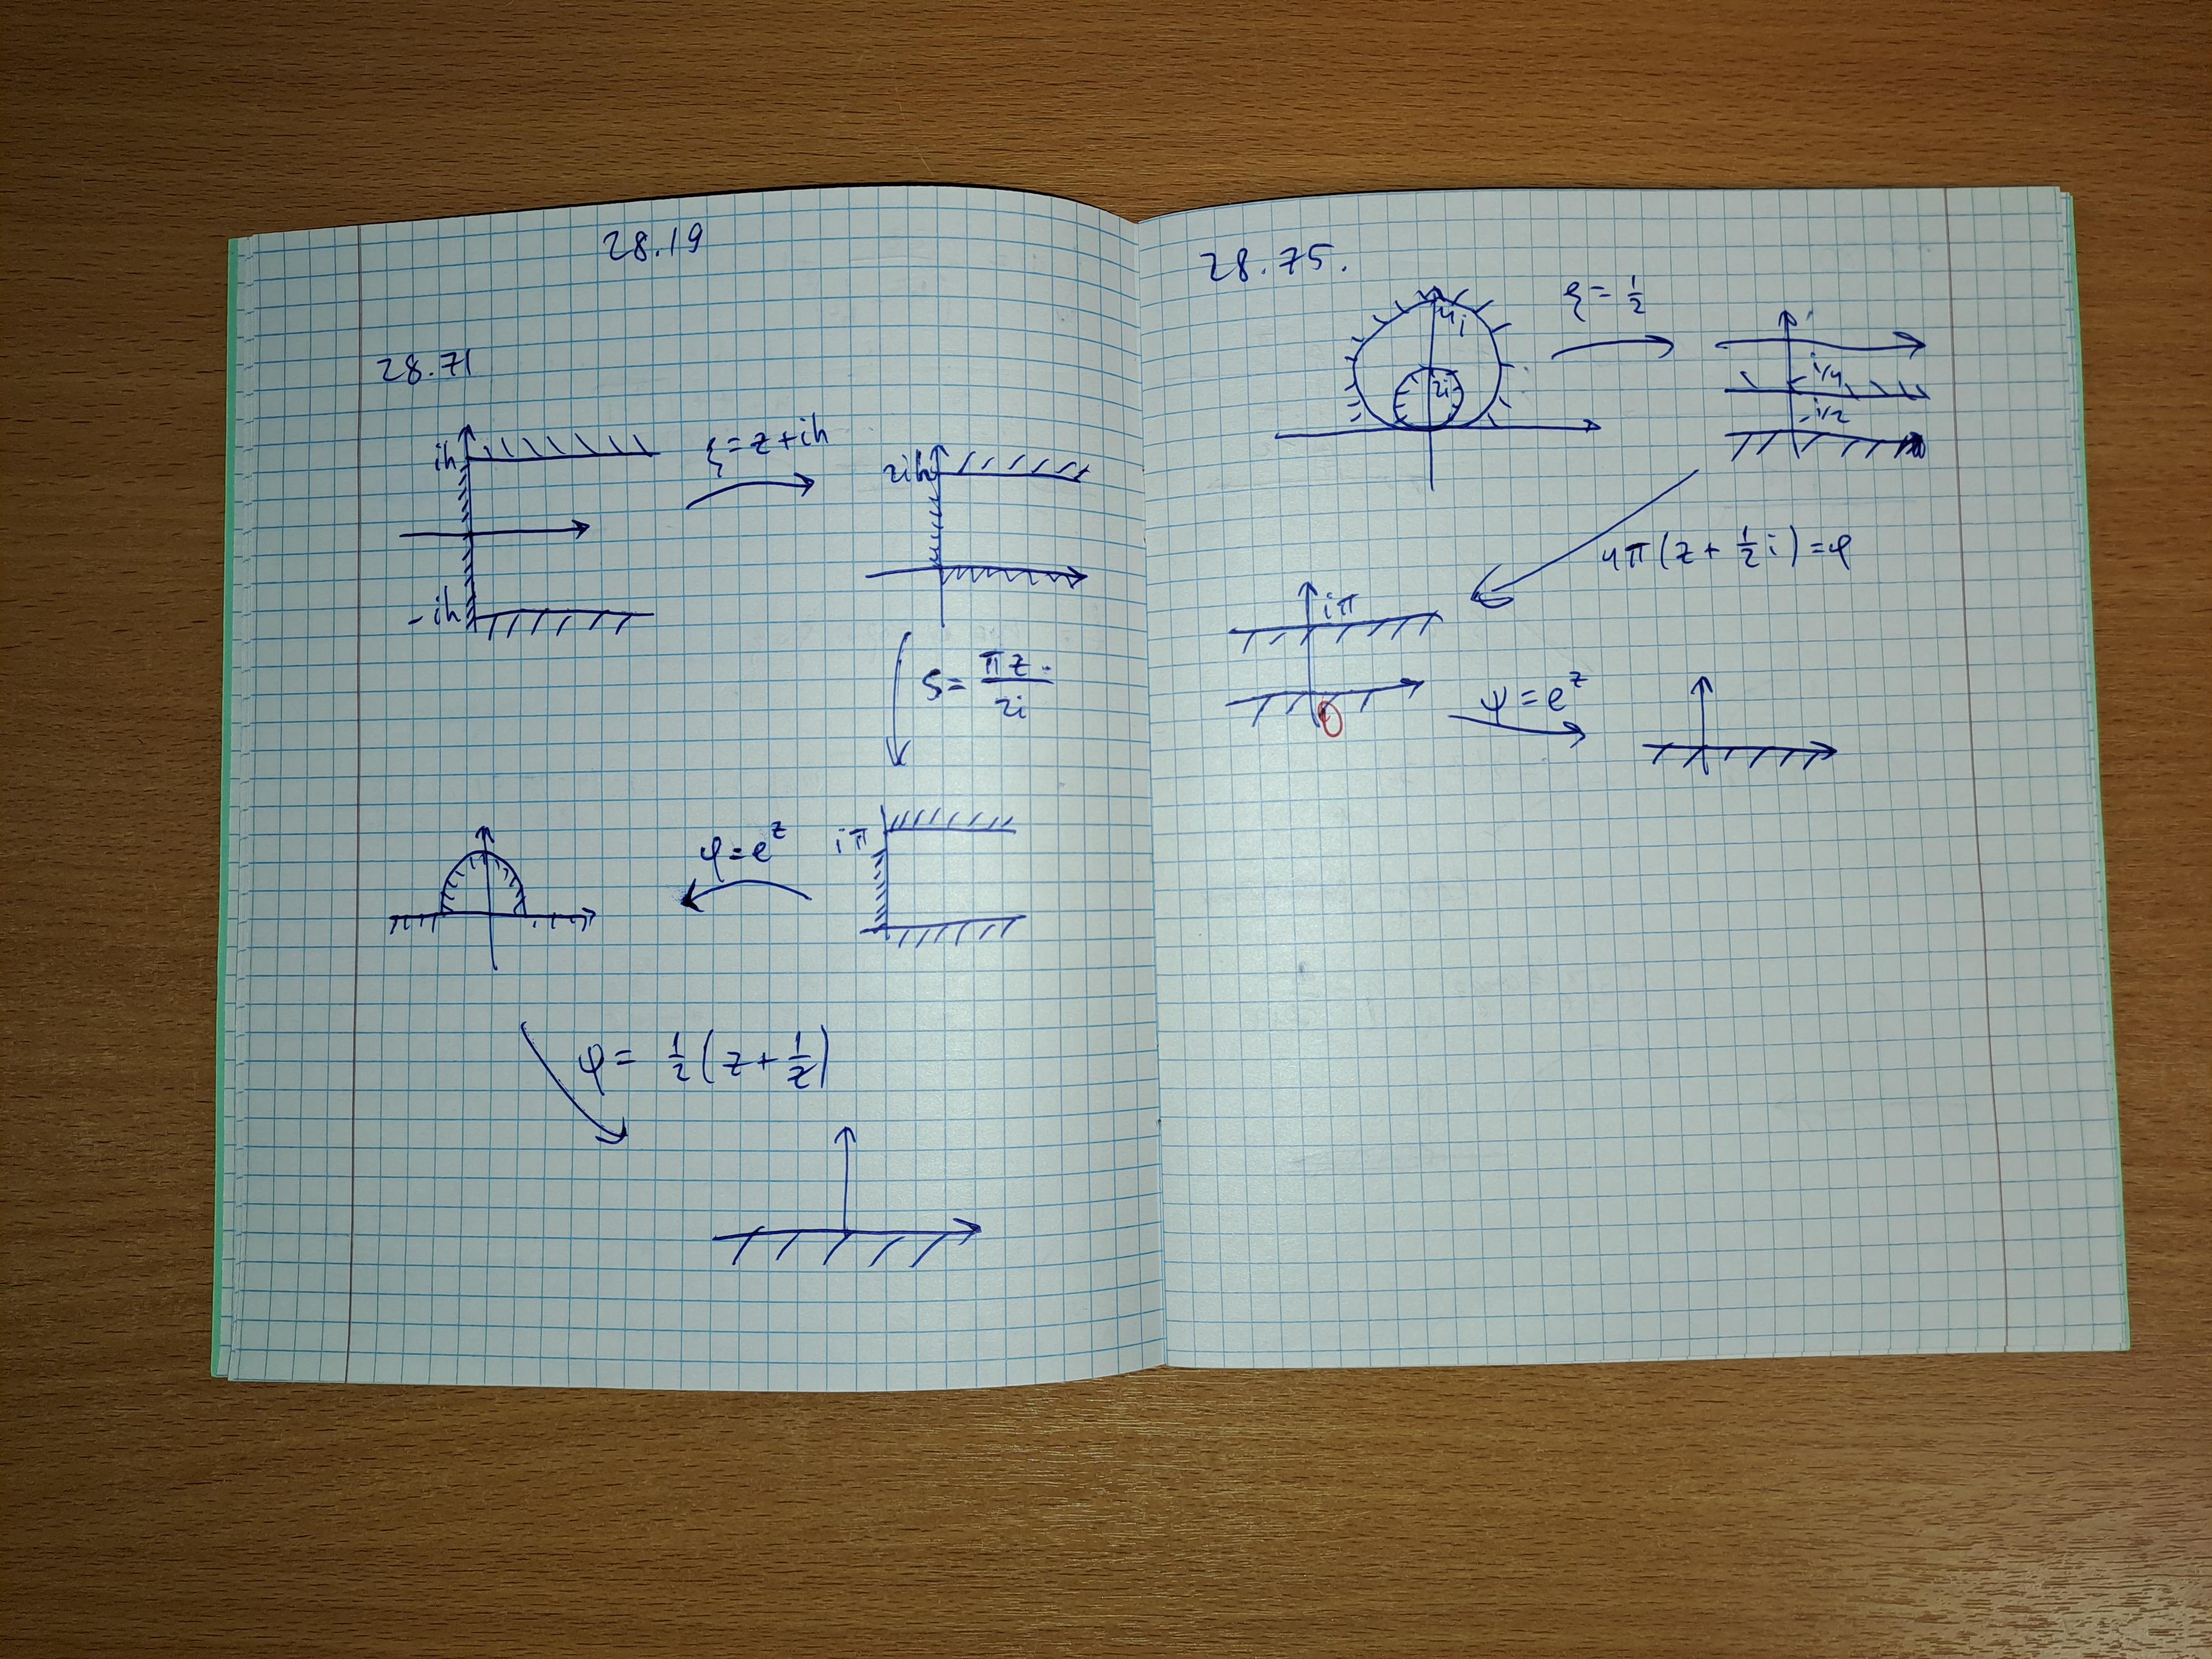 28.19
28.71
ih
-ih
ξ=z+ih
2ih
S= πz/2i
iπ
φ=e^z
ψ= 1/2(z+1/z)
28.75.
4i
2i
ξ=1/2
i/4
-i/2
4π(z+1/2 i)=φ
iπ
0
ψ=e^z